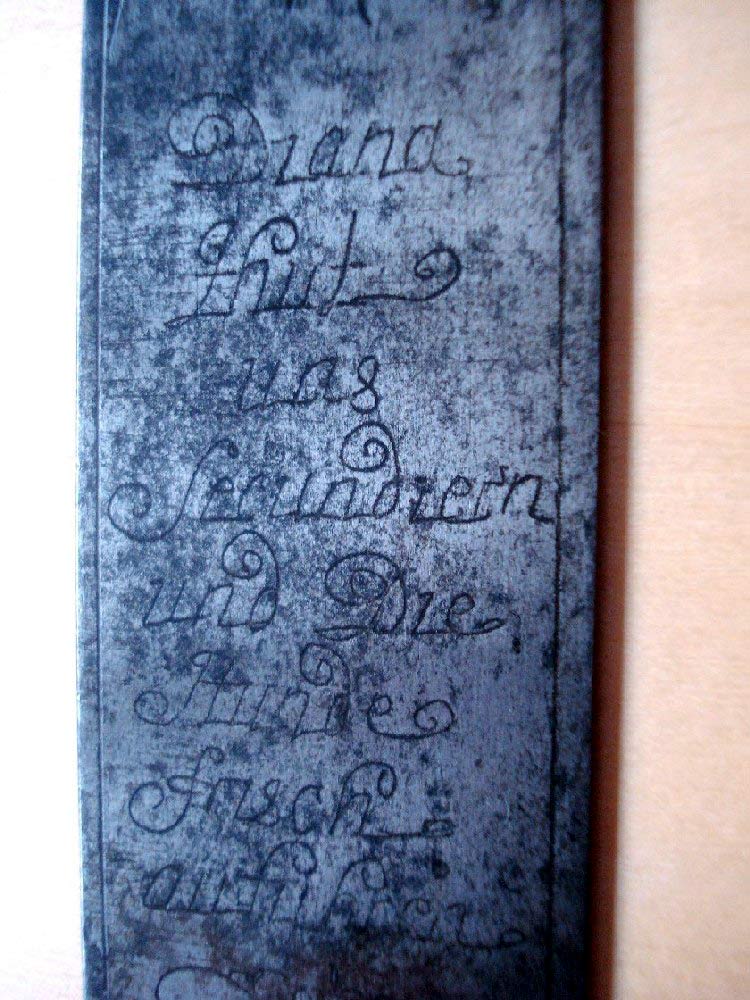 Diana
thut
uns
secundiern
und Die
Hunde
frisch
auf